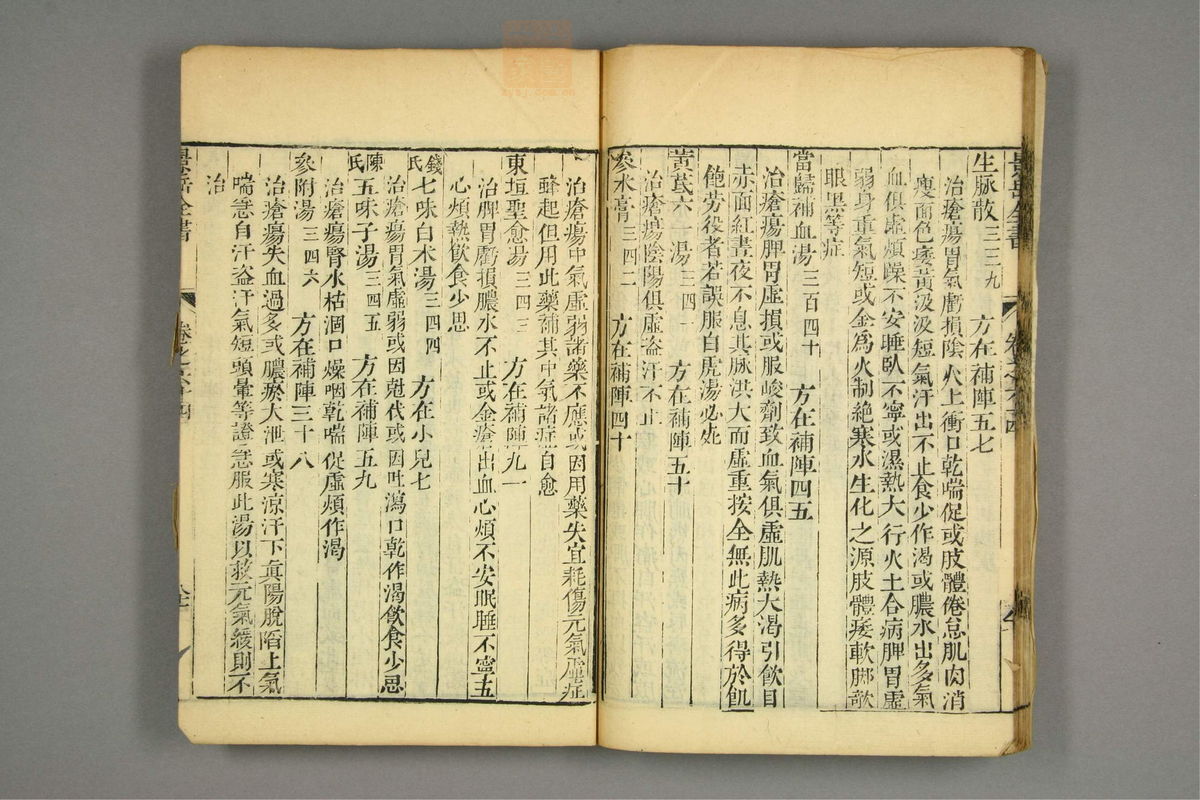 景岳全書 卷之六十四
生脉散三三九 方在補陣五七
治瘡瘍胃氣虧損陰火上衝口乾喘促或肢體倦怠肌肉消
瘦面色痿黃汲汲短氣汗出不止食少作渴或膿水出多氣
血俱虛煩躁不安睡臥不寧或濕熱大行火土合病脾胃虛
弱身重氣短或金為火制絶寒水生化之源肢體痿軟脚欹
眼黑等症
當歸補血湯三百四十 方在補陣四五
治瘡瘍脾胃虛損或服峻劑致血氣俱虛肌熱大渴引飲目
赤面紅晝夜不息其脉洪大而虛重按全無此病多得於飢
飽勞役者若誤服白虎湯必死
黃芪六一湯三四一 方在補陣五十
治瘡瘍陰陽俱虛盜汗不止
參朮膏三四二 方在補陣四十
治瘡瘍中氣虛弱諸藥不應或因用藥失宜耗傷元氣虛症
蜂起但用此藥補其中氣諸症自愈
東垣聖愈湯三四三 方在補陣九一
治脾胃虧損膿水不止或金瘡出血心煩不安眠睡不寧五
心煩熱飲食少思
錢氏七味白朮湯三四四 方在小兒七
治瘡瘍胃氣虛弱或因尅伐或因吐瀉口乾作渴飲食少思
陳氏五味子湯三四五 方在補陣五九
治瘡瘍腎水枯涸口燥咽乾喘促虛煩作渴
參附湯三四六 方在補陣三十八
治瘡瘍失血過多或膿瘀大泄或寒涼汗下眞陽脫陷上氣
喘急自汗盜汗氣短頭暈等證急服此湯以救元氣緩則不
治
景岳全書 卷之六十四